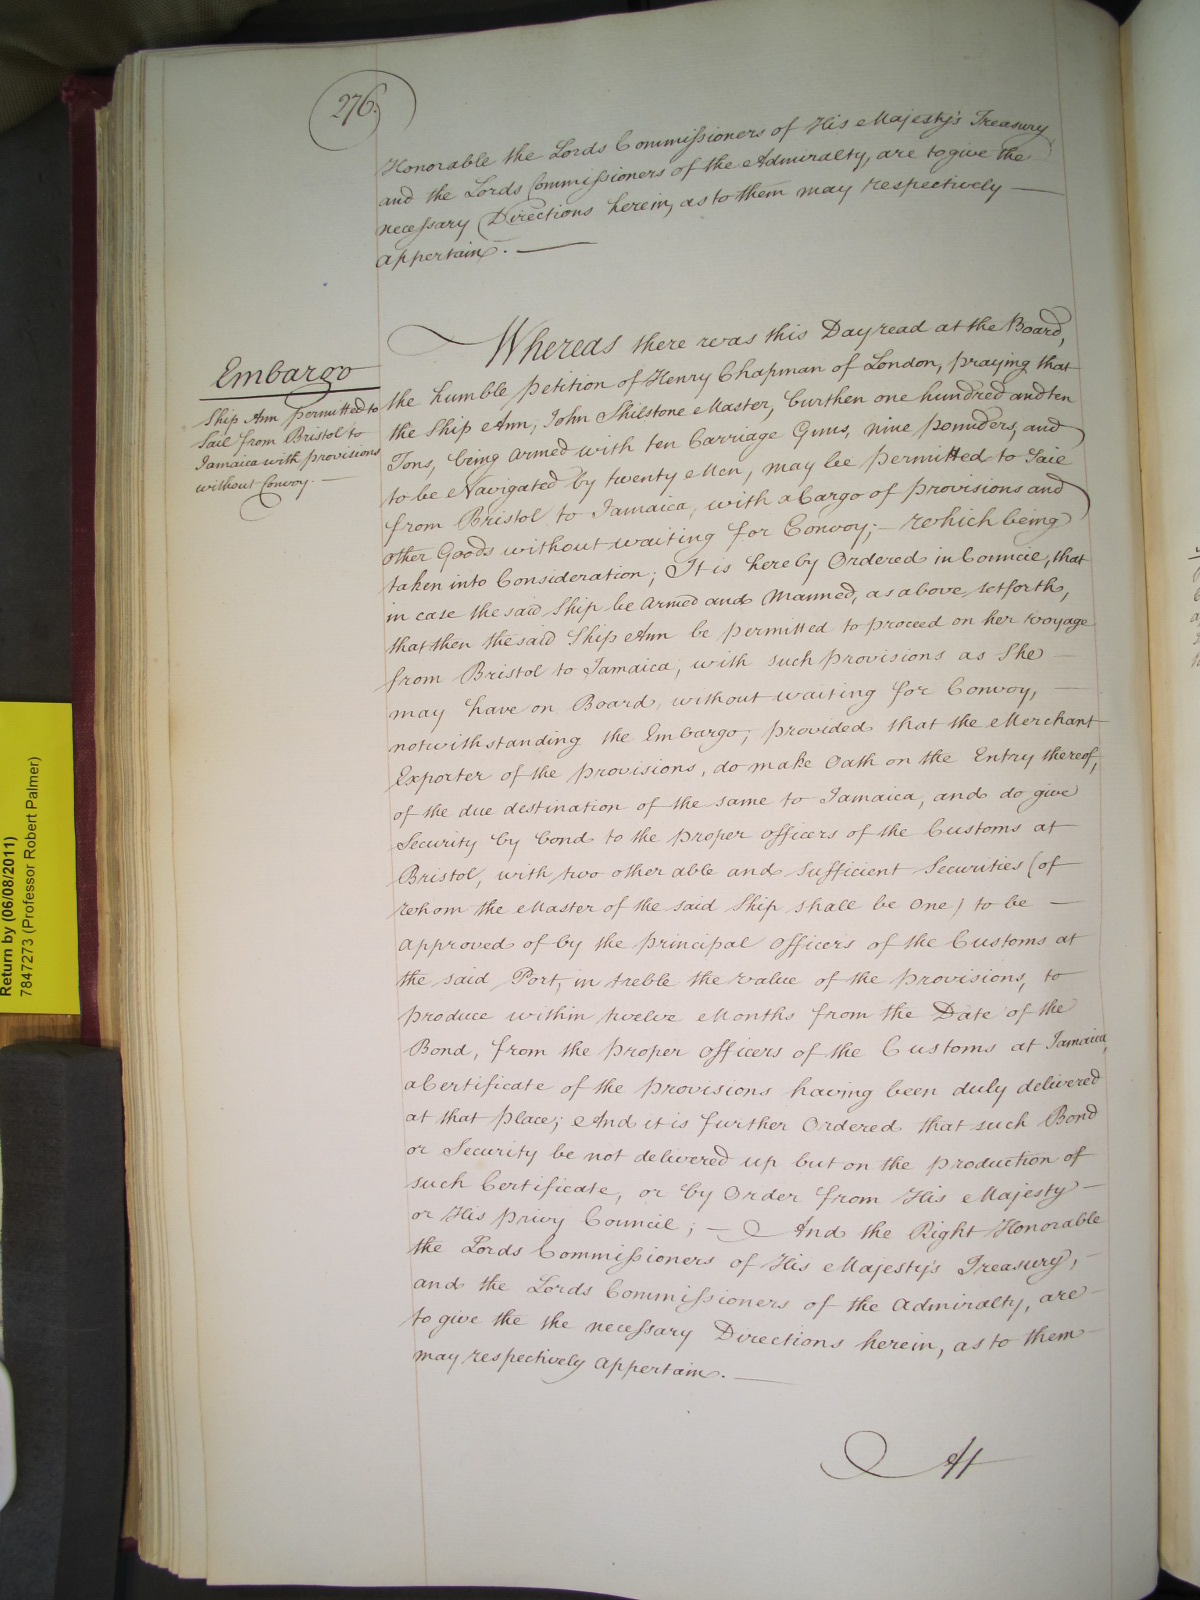 276.
Honorable the Lords Commissioners of His Majesty's Treasury
and the Lords Commissioners of the Admiralty, are to give the
necessary Directions herein, as to them may respectively —
appertain. —
Embargo
Ship Ann permitted to
Sail from Bristol to
Jamaica with provisions
without Convoy. —
Whereas there was this Day read at the Board,
the humble Petition of Henry Chapman of London, praying that
the Ship Ann, John Shilstone Master, burthen one hundred and ten
Tons, being armed with ten Carriage Guns, nine pounders, and
to be Navigated by twenty Men, may be permitted to Sail
from Bristol to Jamaica, with a Cargo of provisions and
other Goods without waiting for Convoy; — which being
taken into Consideration; It is hereby Ordered in Council, that
in case the said Ship be Armed and Manned, as above setforth,
that then the said Ship Ann be permitted to proceed on her voyage
from Bristol to Jamaica, with such provisions as She —
may have on Board, without waiting for Convoy, —
notwithstanding the Embargo; provided that the Merchant
Exporter of the provisions, do make Oath on the Entry thereof,
of the due destination of the same to Jamaica, and do give
Security by bond to the proper officers of the Customs at
Bristol, with two other able and sufficient Securities (of
whom the Master of the said Ship shall be One) to be —
approved of by the principal officers of the Customs at
the said Port, in treble the value of the provisions, to
produce within twelve Months from the Date of the
Bond, from the proper officers of the Customs at Jamaica,
a Certificate of the provisions having been duly delivered
at that place; And it is further Ordered that such Bond
or Security be not delivered up but on the production of
such Certificate, or by Order from His Majesty —
or His Privy Council; — And the Right Honorable
the Lords Commissioners of His Majesty's Treasury, —
and the Lords Commissioners of the Admiralty, are —
to give the the necessary Directions herein, as to them —
may respectively appertain. —
At
Return by (06/08/2011)
7847273 (Professor Robert Palmer)